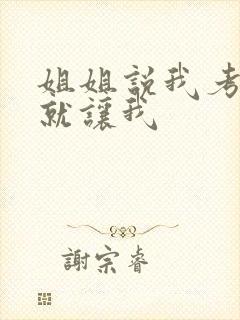 姐姐説我考
就讓我
謝宗睿